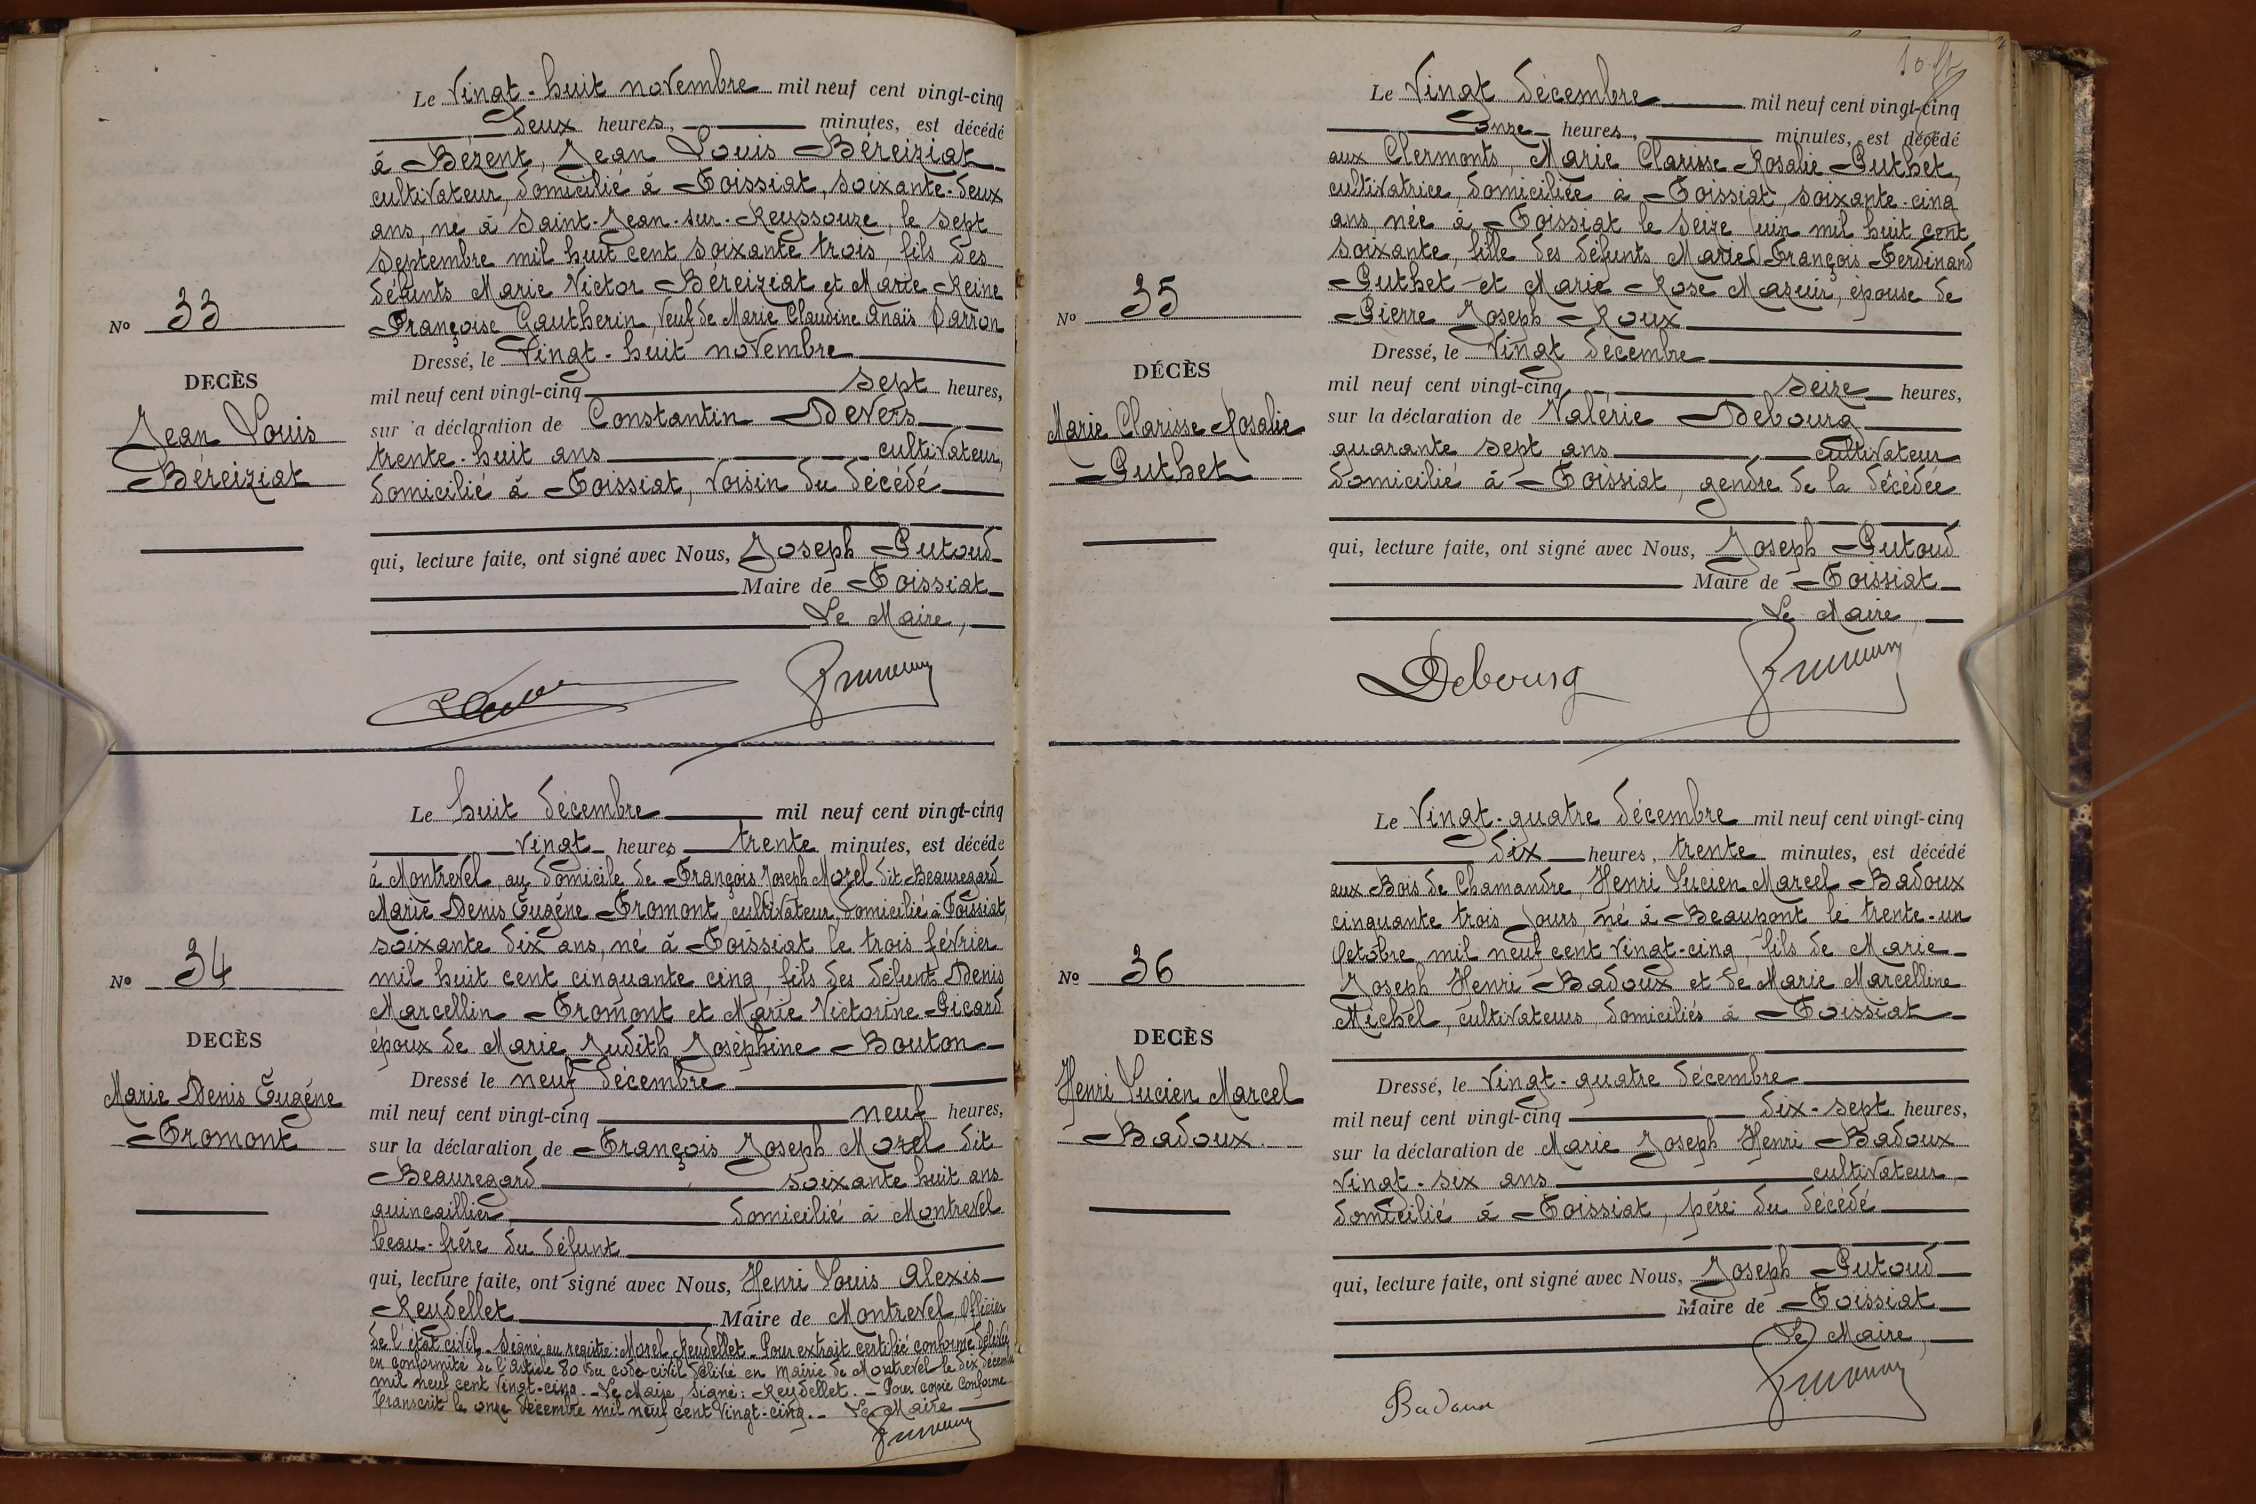 Le vingt-huit novembre mil neuf cent vingt-cinq
deux heures, minutes, est décédé
à Bézent, Jean Louis Béreiziat
cultivateur, domicilié à Foissiat, soixante-deux
ans, né à Saint-Jean-sur-Reyssouze, le sept
septembre mil huit cent soixante trois, fils des
défunts Marie Victor Béreiziat et Marie Reine
Françoise Gautherin, veuf de Marie Claudine Anaïs Darron
Nº 33
DECÈS
Jean Louis
Béreiziat
Dressé, le vingt-huit novembre
mil neuf cent vingt-cinq sept heures,
sur la déclaration de Constantin Devers
trente-huit ans cultivateur,
domicilié à Foissiat, voisin du décédé
qui, lecture faite, ont signé avec Nous, Joseph Putoud
Maire de Foissiat
Le Maire,
Le huit décembre mil neuf cent vingt-cinq
vingt heures trente minutes, est décédé
à Montrevel, au domicile de François Joseph Morel dit Beauregard
Marie Denis Eugène Fromont, cultivateur, domicilié à Foissiat,
soixante dix ans, né à Foissiat le trois février
mil huit cent cinquante cinq, fils des défunts Denis
Marcellin Fromont et Marie Victorine Picard
époux de Marie Judith Joséphine Bouton
Nº 34
DECÈS
Marie Denis Eugène
Fromont
Dressé le neuf décembre
mil neuf cent vingt-cinq neuf heures,
sur la déclaration de François Joseph Morel dit
Beauregard soixante huit ans
quincaillier domicilié à Montrevel
beau-frère du défunt
qui, lecture faite, ont signé avec Nous, Henri Louis Alexis
Reudellet Maire de Montrevel, Officier
de l'état civil. Signé au registre: Morel, Reudellet. Pour extrait certifié conforme délivré
en conformité de l'article 80 du code civil délivré en mairie de Montrevel le dix décembre
mil neuf cent vingt-cinq. Le Maire, signé: Reudellet. Pour copie conforme
Transcrit le onze décembre mil neuf cent vingt-cinq. Le Maire
Le vingt décembre mil neuf cent vingt-cinq
onze heures, minutes, est décédé
aux Clermonts, Marie Clarisse Rosalie Puthet,
cultivatrice, domiciliée à Foissiat, soixante-cinq
ans, née à Foissiat le seize juin mil huit cent
soixante, fille des défunts Marie François Ferdinand
Puthet et Marie Rose Mazuir, épouse de
Pierre Joseph Roux
Nº 35
DÉCÈS
Marie Clarisse Rosalie
Puthet
Dressé, le vingt décembre
mil neuf cent vingt-cinq seize heures,
sur la déclaration de Valérie Debourg
quarante sept ans cultivateur
domicilié à Foissiat, gendre de la décédée
qui, lecture faite, ont signé avec Nous, Joseph Putoud
Maire de Foissiat
Le Maire,
Debourg
Le vingt-quatre décembre mil neuf cent vingt-cinq
dix heures, trente minutes, est décédé
aux Bois de Chamandre, Henri Lucien Marcel Badoux
cinquante trois jours, né à Beaupont le trente-un
Octobre mil neuf cent vingt-cinq, fils de Marie
Joseph Henri Badoux et de Marie Marcelline
Michel, cultivateurs, domiciliés à Foissiat
Nº 36
DECÈS
Henri Lucien Marcel
Badoux
Dressé, le vingt-quatre décembre
mil neuf cent vingt-cinq dix-sept heures,
sur la déclaration de Marie Joseph Henri Badoux
vingt-six ans cultivateur
domicilié à Foissiat, père du décédé
qui, lecture faite, ont signé avec Nous, Joseph Putoud
Maire de Foissiat
Le Maire,
Badoux